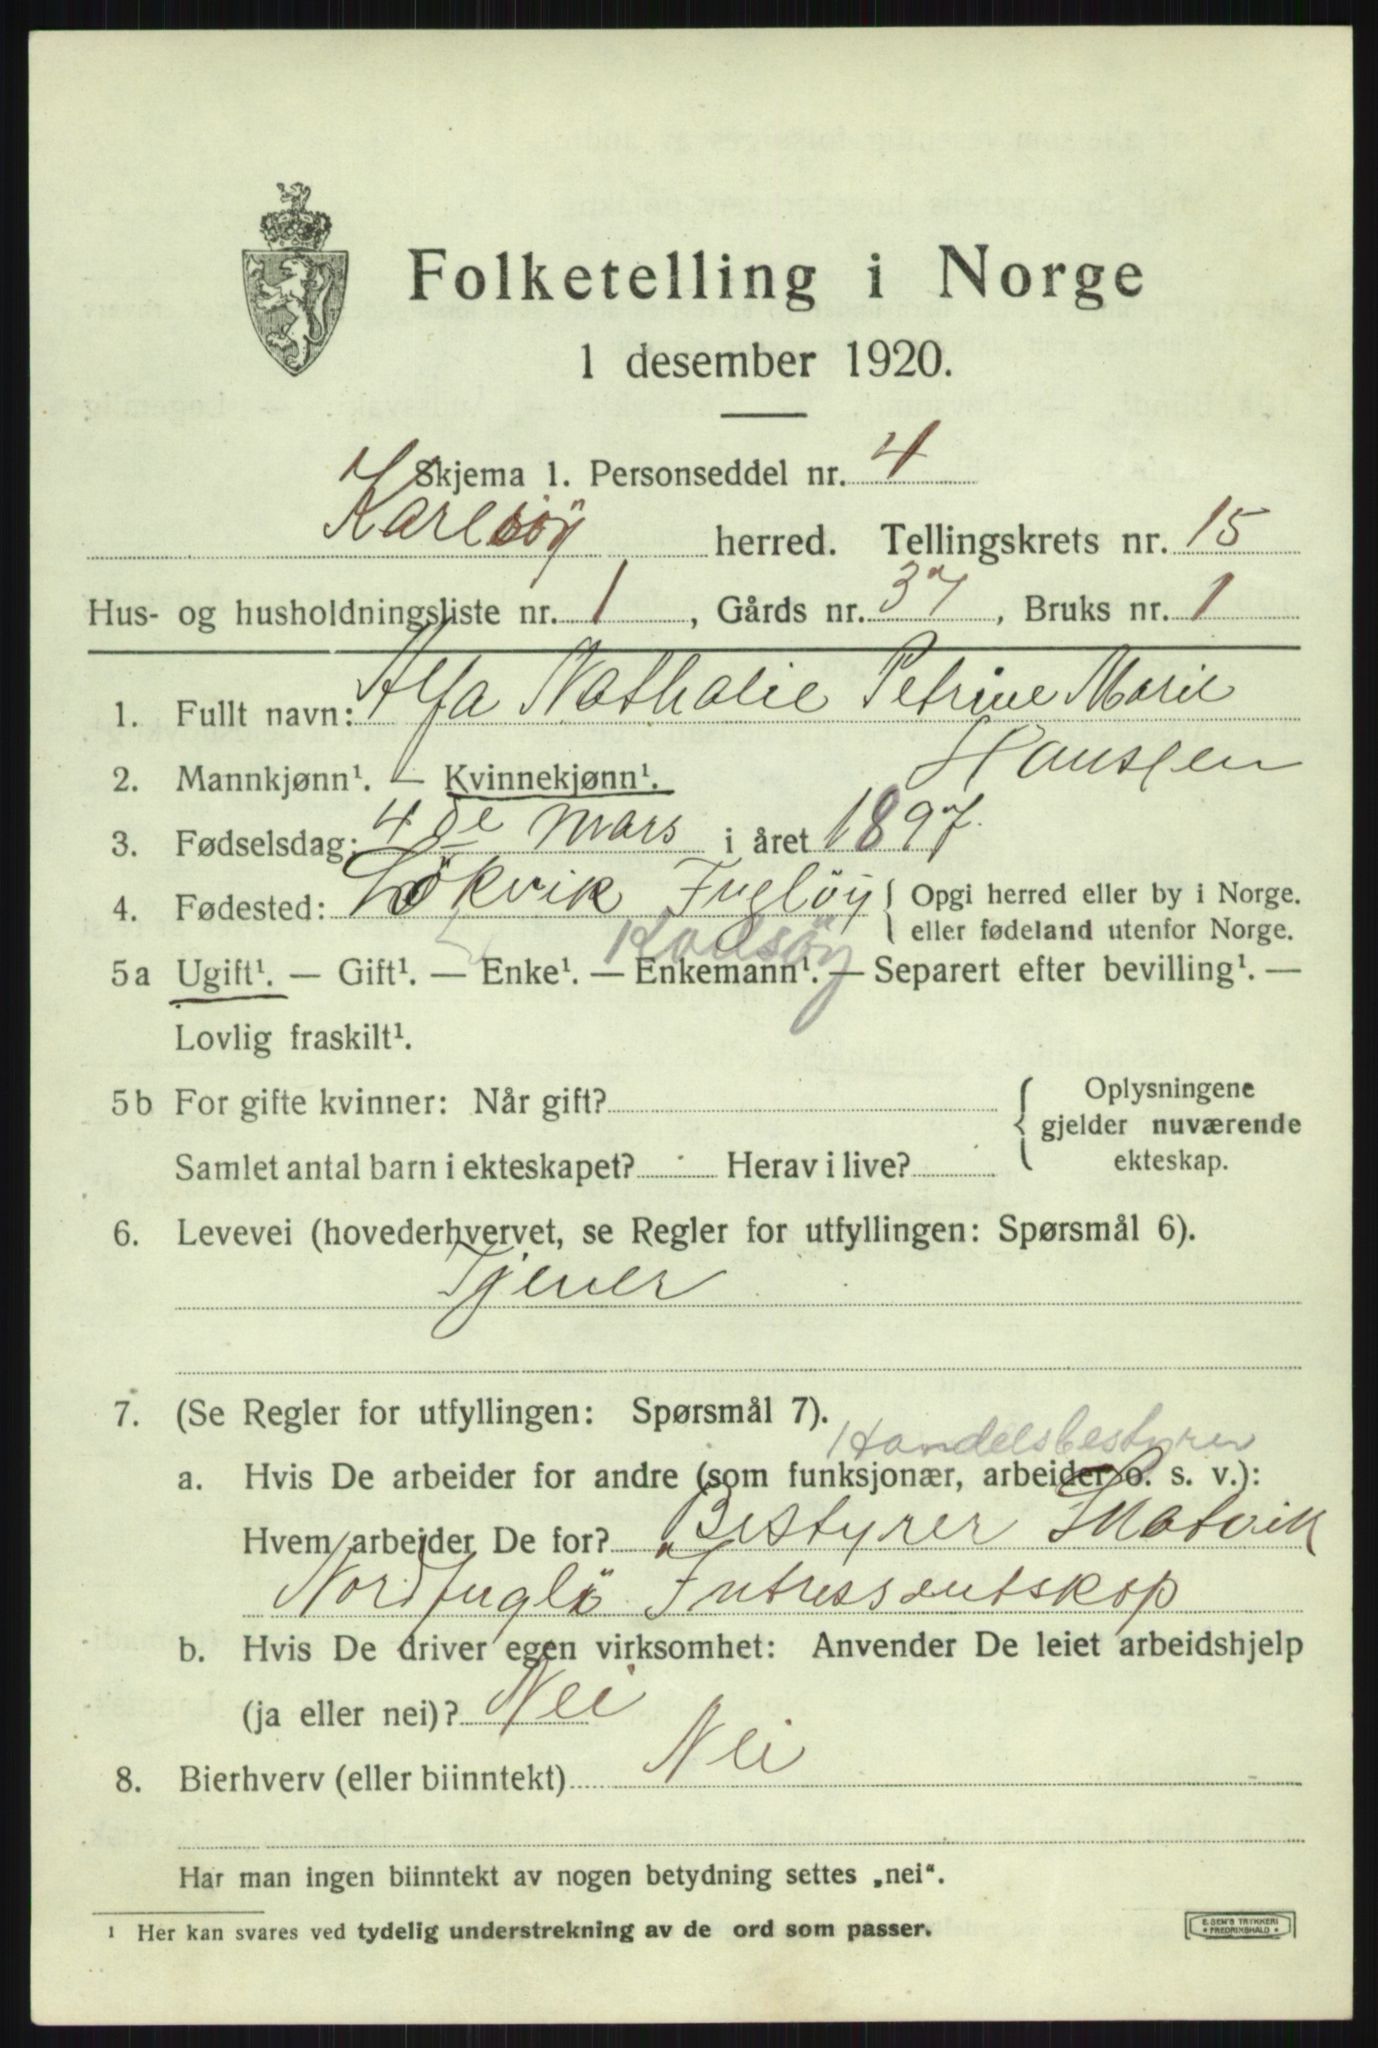 Folketelling i Norge
1 desember 1920.
Skjema 1. Personseddel nr. 4
Karlsöy herred. Tellingskrets nr. 15
Hus- og husholdningsliste nr. 1, Gårds nr. 37, Bruks nr. 1
1. Fullt navn: Alfa Nathalie Petrine Marie
Hansen
2. Mannkjønn¹. — Kvinnekjønn¹.
3. Fødselsdag: 4de mars i året 1897.
4. Fødested: Lökvik Fuglöy { Opgi herred eller by i Norge.
eller fødeland utenfor Norge.
Karlsöy
5a Ugift¹. — Gift¹. — Enke¹. — Enkemann¹. — Separert efter bevilling¹. —
Lovlig fraskilt¹.
5b For gifte kvinner: Når gift? { Oplysningene
gjelder nuværende
Samlet antal barn i ekteskapet? Herav i live? ekteskap.
6. Levevei (hovederhvervet, se Regler for utfyllingen: Spørsmål 6).
Tjener
7. (Se Regler for utfyllingen: Spørsmål 7).
Handelsbestyrer
a. Hvis De arbeider for andre (som funksjonær, arbeider o. s. v.):
Hvem arbeider De for? Bestyrer
Nordfuglö Intressentskap
b. Hvis De driver egen virksomhet: Anvender De leiet arbeidshjelp
(ja eller nei)? Nei
8. Bierhverv (eller biinntekt) Nei
Har man ingen biinntekt av nogen betydning settes „nei“.
¹ Her kan svares ved tydelig understrekning av de ord som passer.
E. SEM'S TRYKKERI
FREDRIKSHALD